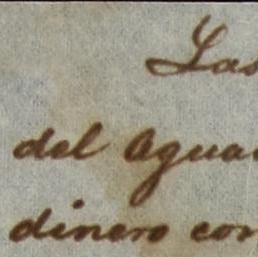 Las
del Agua
dinero con